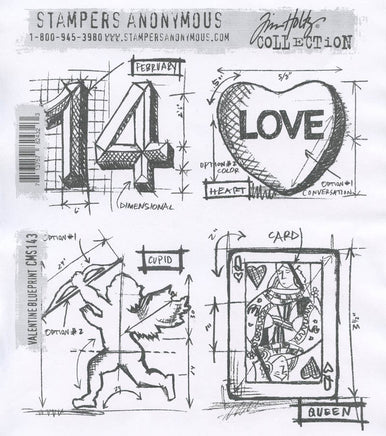 STAMPERS ANONYMOUS
1-800-945-3980 WWW.STAMPERSANONYMOUS.COM
Tim Holtz
COLLECTION
FEBRUARY
14
6"
DIMENSIONAL
5/8"
LOVE
OPTION #2
COLOR
HEART
OPTION #1
CONVERSATION
VALENTINE BLUEPRINT CMS143
OPTION #1
CUPID
OPTION #2
CARD
2"
Q
QUEEN